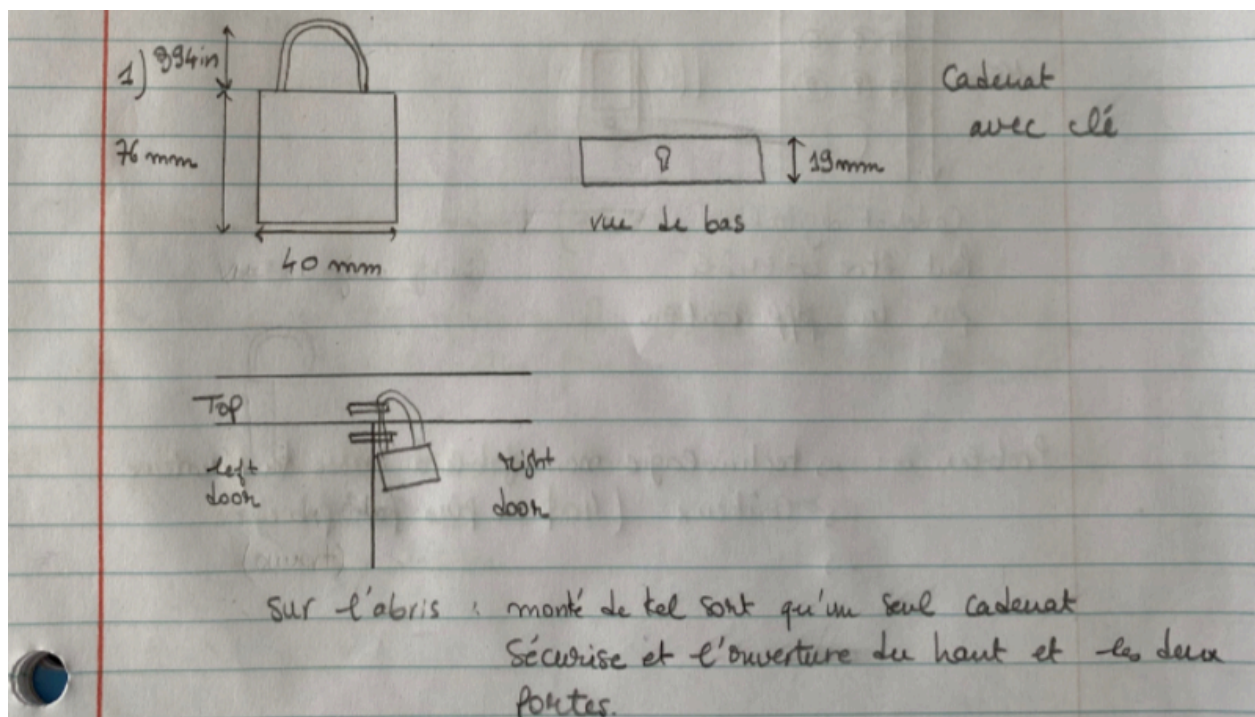 1)
994in
76 mm
40 mm
19mm
vue de bas
Cadenat
avec clé
Top
left
door
right
door
sur l'abris : monté de tel sort qu'un seul cadenat
Sécurise et l'ouverture du haut et les deux
portes.